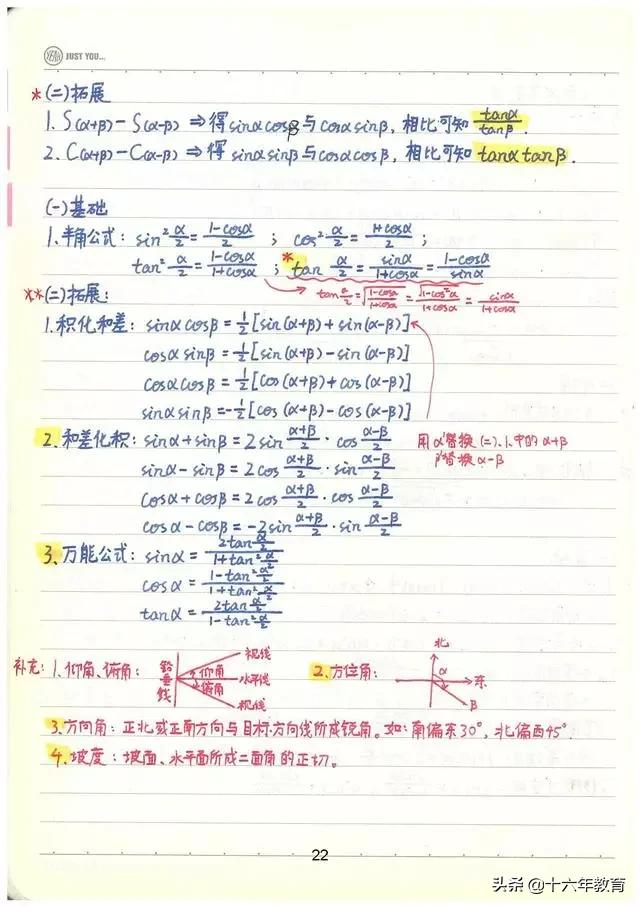 YEAH JUST YOU...
*(二)拓展
1. S(α+β)-S(α-β) ⇒ 得sinαcosβ与cosαsinβ, 相比可知 tanα/tanβ.
2. C(α+β)-C(α-β) ⇒ 得 sinαsinβ与cosαcosβ, 相比可知 tanαtanβ.
(一)基础
1.半角公式: sin²α/2=(1-cosα)/2 ; cos²α/2=(1+cosα)/2 ;
tan²α/2=(1-cosα)/(1+cosα) ; *tan α/2=sinα/(1+cosα)=(1-cosα)/sinα
tanα/2=√((1-cosα)/(1+cosα))=√(1-cos²α)/(1+cosα)=sinα/(1+cosα)
**(二)拓展:
1.积化和差: sinαcosβ=½[sin(α+β)+sin(α-β)]
cosαsinβ=½[sin(α+β)-sin(α-β)]
cosαcosβ=½[cos(α+β)+cos(α-β)]
sinαsinβ=-½[cos(α+β)-cos(α-β)]
2.和差化积: sinα+sinβ=2sin (α+β)/2·cos (α-β)/2
用α'替换(二).1.中的α+β
β'替换α-β
sinα-sinβ=2cos (α+β)/2·sin (α-β)/2
cosα+cosβ=2cos (α+β)/2·cos (α-β)/2
cosα-cosβ=-2sin (α+β)/2·sin (α-β)/2
3.万能公式: sinα=2tan α/2/(1+tan²α/2)
cosα=(1-tan²α/2)/(1+tan²α/2)
tanα=2tan α/2/(1-tan²α/2)
补充: 1.仰角、俯角:
铅垂线
视线
仰角
水平线
俯角
视线
2.方位角:
北
α
东
β
3.方向角: 正北或正南方向与目标方向线所成锐角。如: 南偏东30°, 北偏西45°.
4.坡度: 坡面、水平面所成二面角的正切。
22
头条 @十六年教育